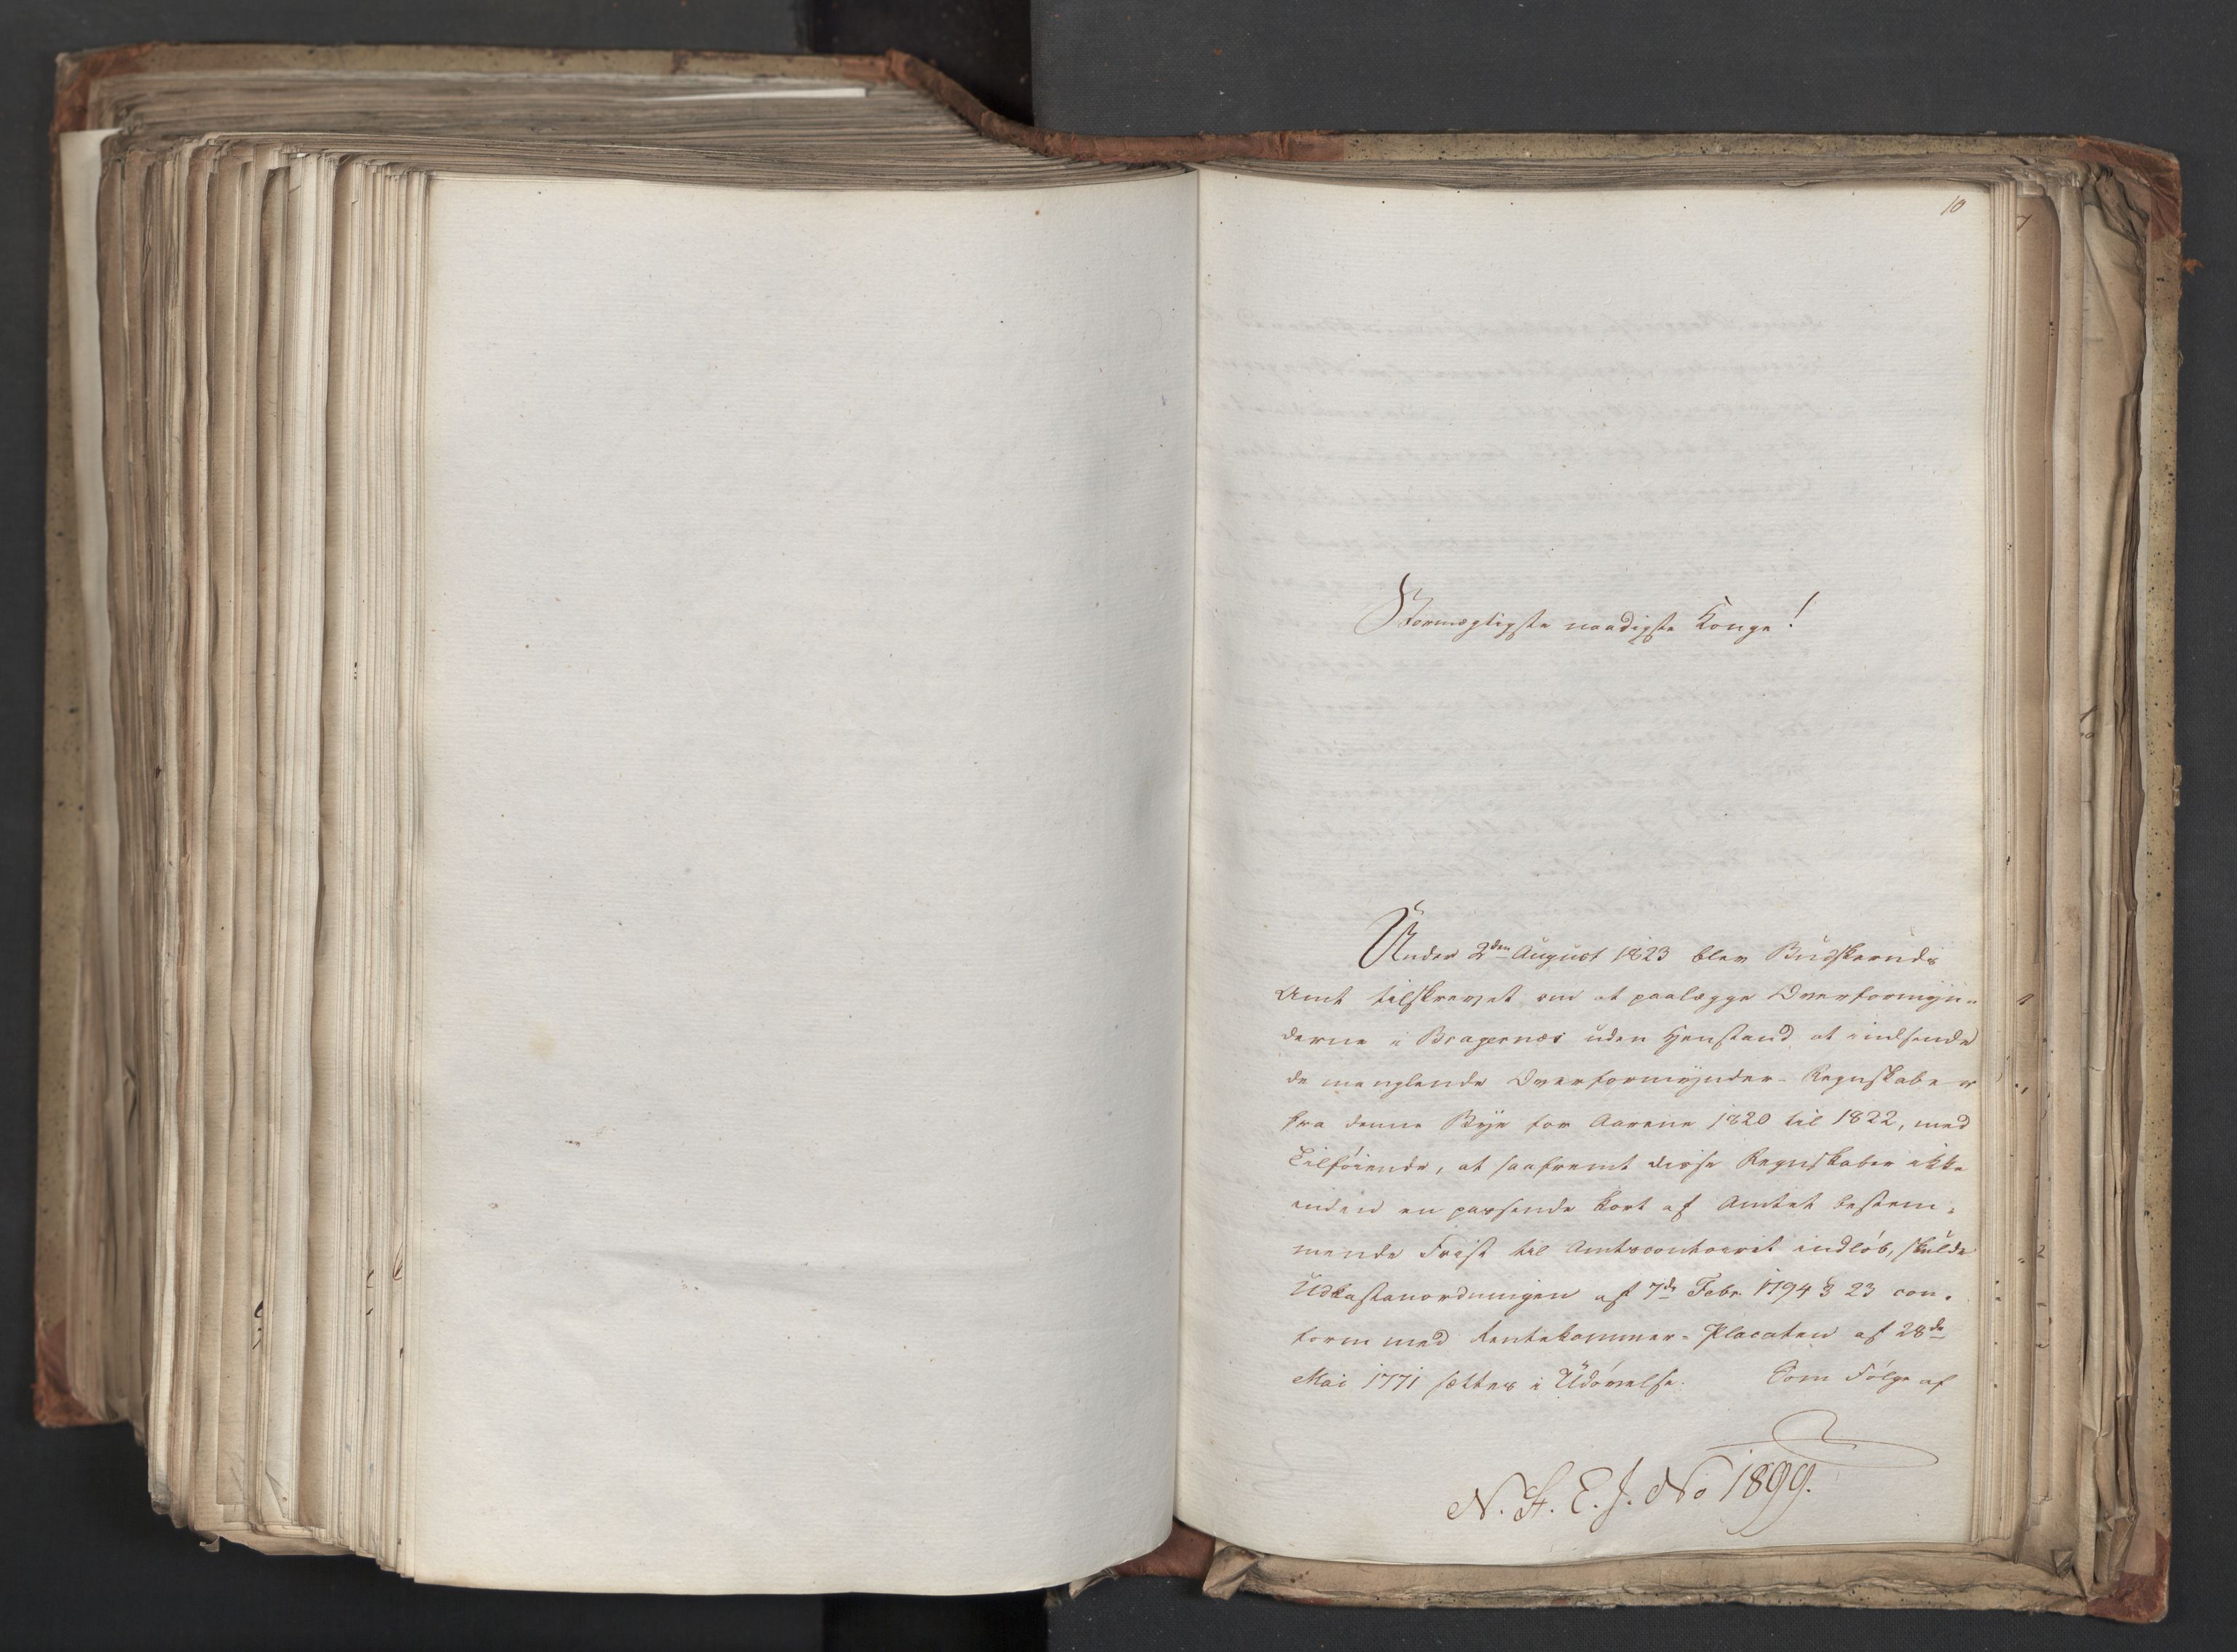 10
Stormægtigste naadigste Konge!
Under 2den August 1823 blev Budskeruds
Amt tilskrevet om at paalægge Overformyn-
derne i Bragernæs uden Henstand at indsende
de manglende Overformynder-Regnskaber
fra denne Bye for Aarene 1820 til 1822, med
Tilføiende, at saafremt disse Regnskaber ikke
inden en passende kort af Amtet bestem-
mende Frist til Amtscontoiret indløb, skulde
Udkastanordningen af 7de Febr. 1794 § 23 con-
form med Rentekammer-Placaten af 28de
Mai 1771 sættes i Udøvelse. Som Følge af
N. St. E. J. No 1899.